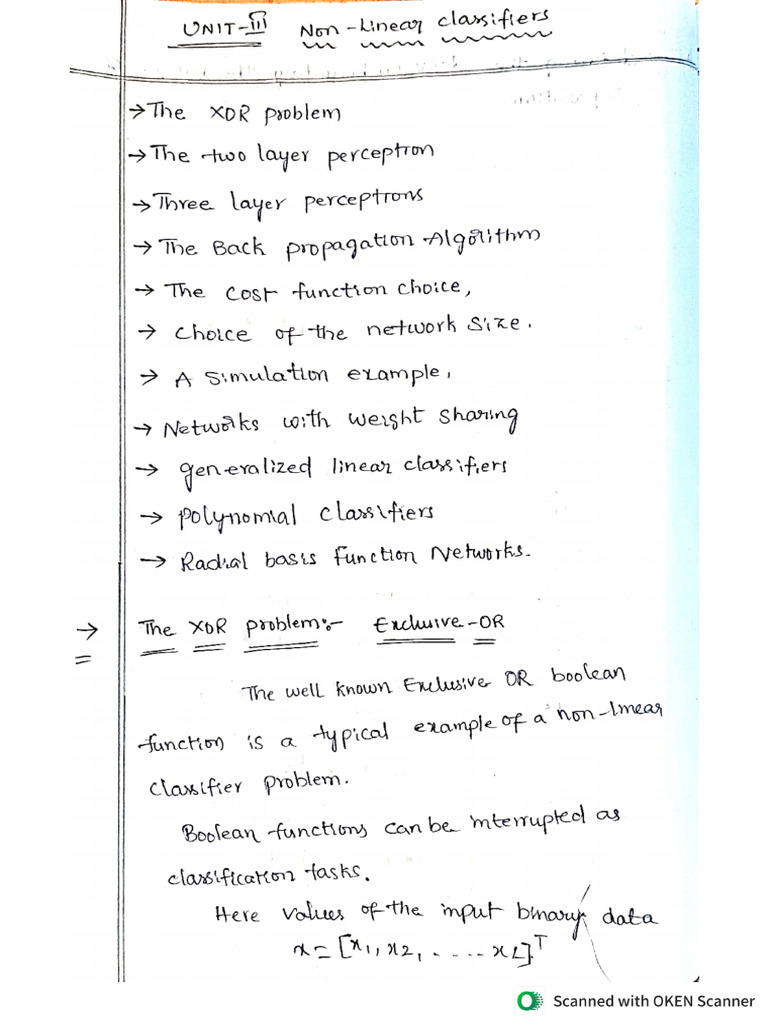 UNIT-III Non-Linear classifiers
→ The XOR problem
→ The two layer perceptron
→ Three layer perceptrons
→ The Back propagation Algorithm
→ The cost function choice,
→ choice of the network size.
→ A simulation example,
→ Networks with weight sharing
→ generalized linear classifiers
→ polynomial classifiers
→ Radial basis function Networks.
→ The XOR problem:- Exclusive-OR
The well known Exclusive OR boolean
function is a typical example of a non-linear
classifier problem.
Boolean functions can be interrupted as
classification tasks.
Here values of the input binary data
x = [x1, x2, . . . . xL]^T
Scanned with OKEN Scanner